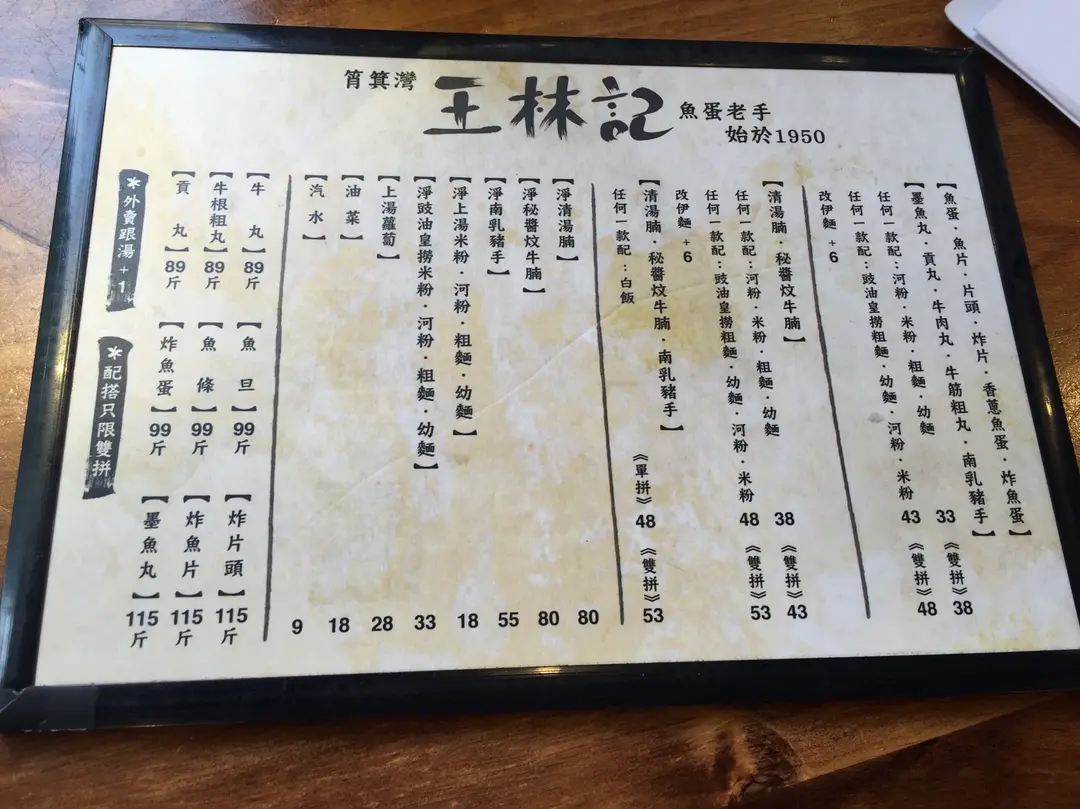 筲箕灣
王林記
魚蛋老手
始於1950
【魚蛋·魚片·片頭·炸片·香蔥魚蛋·炸魚蛋】
【墨魚丸·貢丸·牛肉丸·牛筋粗丸·南乳豬手】
任何一款配：河粉·米粉·粗麵·幼麵 33 《雙拼》38
任何一款配：豉油皇撈粗麵·幼麵·河粉·米粉 43 《雙拼》48
改伊麵 +6
【清湯腩·秘醬炆牛腩】
任何一款配：河粉·米粉·粗麵·幼麵 38 《雙拼》43
任何一款配：豉油皇撈粗麵·幼麵·河粉·米粉 48 《雙拼》53
改伊麵 +6
【清湯腩·秘醬炆牛腩·南乳豬手】
任何一款配：白飯 《單拼》48 《雙拼》53
【淨清湯腩】 80
【淨秘醬炆牛腩】 80
【淨南乳豬手】 55
【淨上湯米粉·河粉·粗麵·幼麵】 18
【淨豉油皇撈米粉·河粉·粗麵·幼麵】 33
【上湯蘿蔔】 28
【油菜】 18
【汽水】 9
【牛丸】89斤 【魚旦】99斤 【炸片頭】115斤
【牛根粗丸】89斤 【魚條】99斤 【炸魚片】115斤
【貢丸】89斤 【炸魚蛋】99斤 【墨魚丸】115斤
*外賣跟湯+1
*配搭只限雙拼